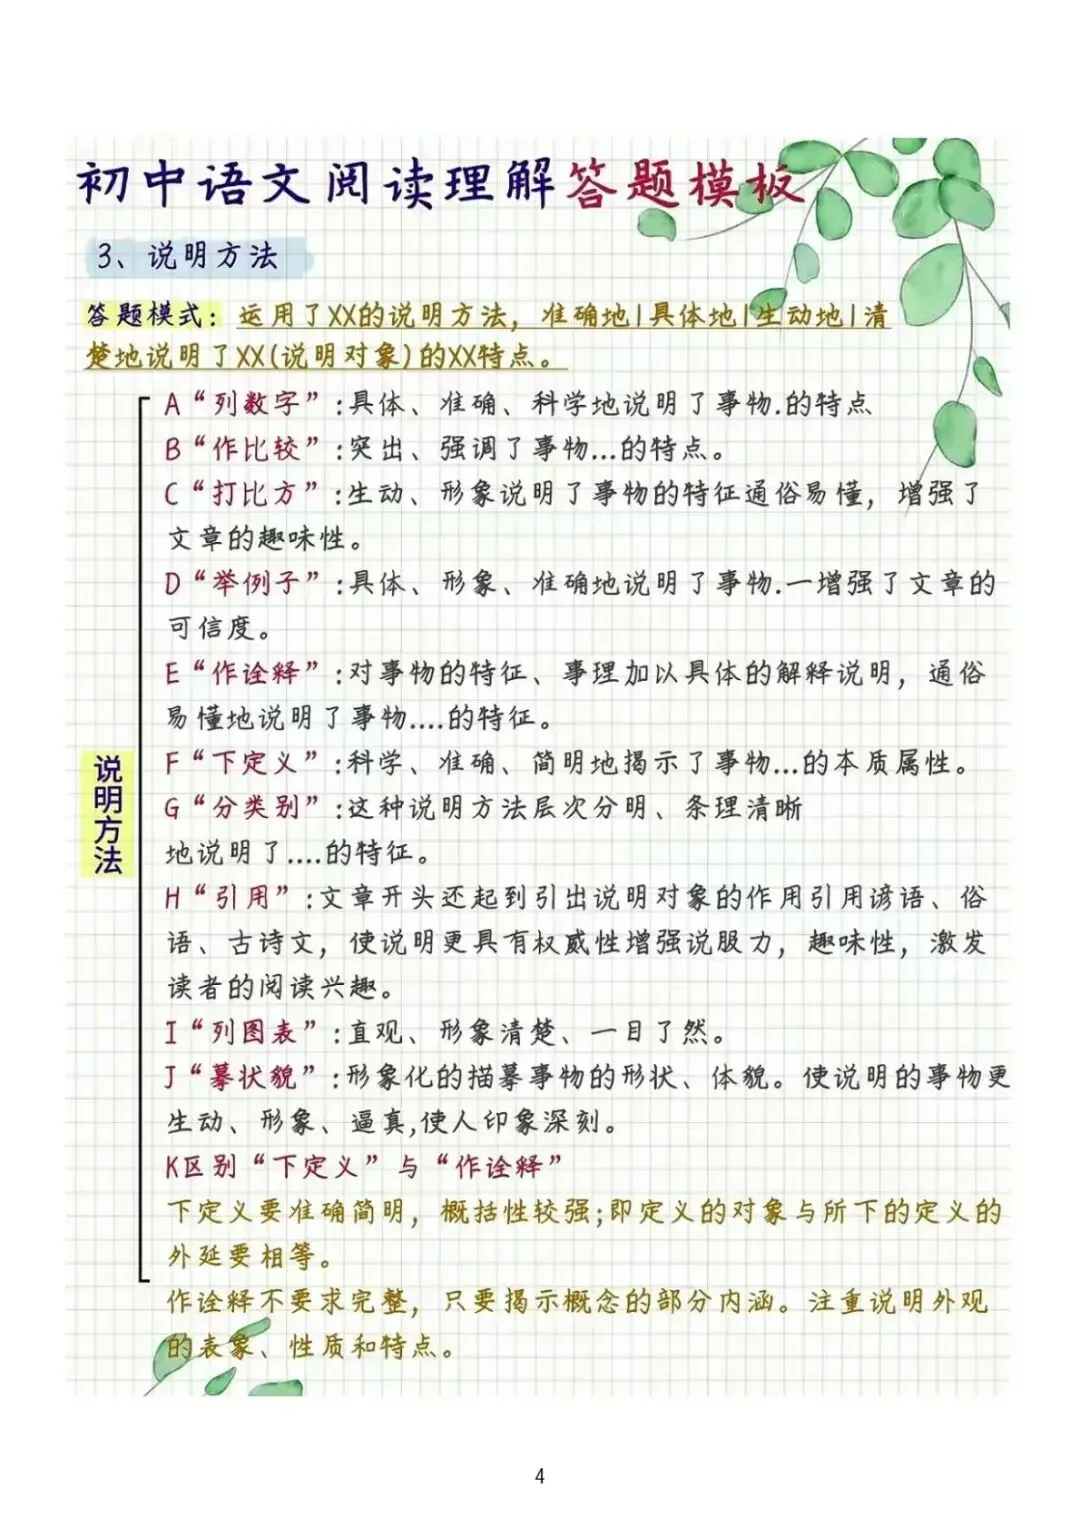 初中语文阅读理解答题模板
3、说明方法
答题模式：运用了XX的说明方法，准确地|具体地|生动地|清
楚地说明了XX(说明对象)的XX特点。
A“列数字”:具体、准确、科学地说明了事物.的特点
B“作比较”:突出、强调了事物...的特点。
C“打比方”:生动、形象说明了事物的特征通俗易懂，增强了
文章的趣味性。
D“举例子”:具体、形象、准确地说明了事物.一增强了文章的
可信度。
E“作诠释”:对事物的特征、事理加以具体的解释说明，通俗
易懂地说明了事物....的特征。
说明方法
F“下定义”:科学、准确、简明地揭示了事物...的本质属性。
G“分类别”:这种说明方法层次分明、条理清晰
地说明了....的特征。
H“引用”:文章开头还起到引出说明对象的作用引用谚语、俗
语、古诗文，使说明更具有权威性增强说服力，趣味性，激发
读者的阅读兴趣。
I“列图表”:直观、形象清楚、一目了然。
J“摹状貌”:形象化的描摹事物的形状、体貌。使说明的事物更
生动、形象、逼真,使人印象深刻。
K区别“下定义”与“作诠释”
下定义要准确简明，概括性较强;即定义的对象与所下的定义的
外延要相等。
作诠释不要求完整，只要揭示概念的部分内涵。注重说明外观
的表象、性质和特点。
4